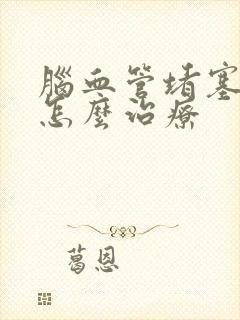 腦血管堵塞
怎麼治療
葛恩